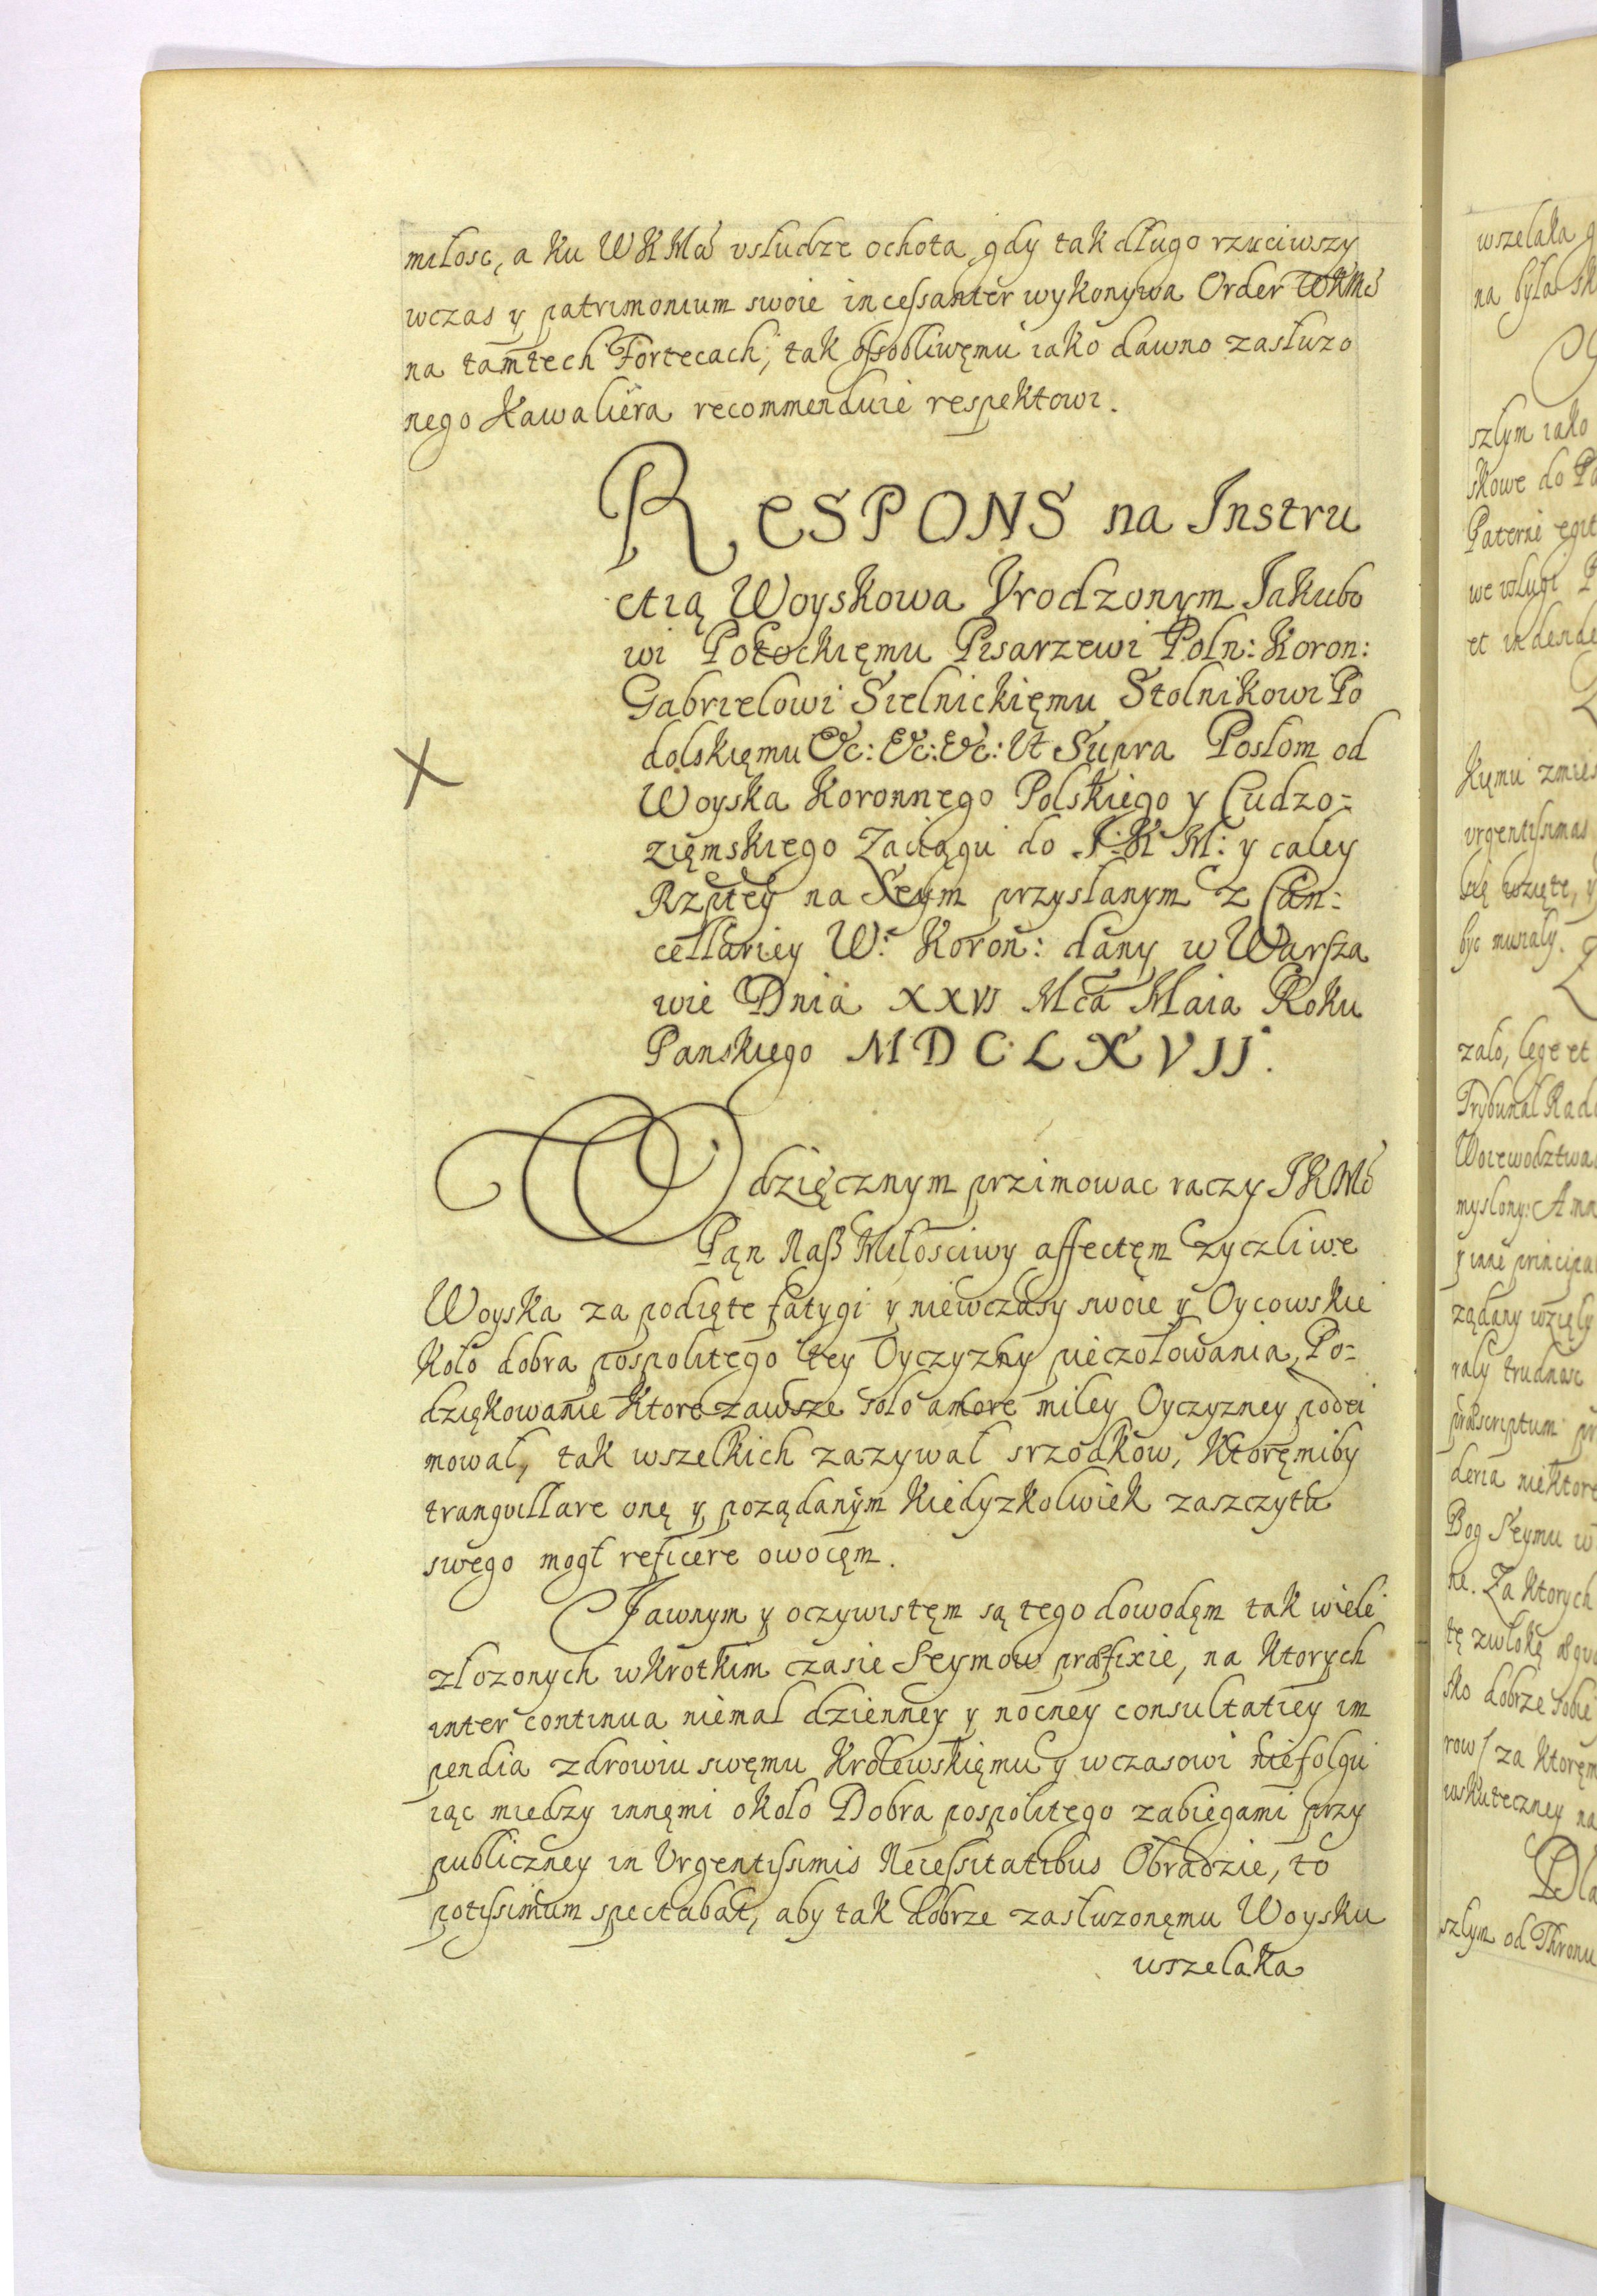 miłosc, a ku WKMci vsłudze ochota, gdy tak długo rzuciwszy
wczas y patrimonium swoie incessanter wykonywa Order WKMci
na tamtech Fortecach, tak ossobliwęmu iako dawno zasłuzo
nego Kawaliera recommenduie respektowi.
RESPONS na Instru
ctią Woyskowa Vrodzonym Jakubo
wi Potockięmu Pisarzewi Poln: Koron:
Gabrielowi Sielnickięmu Stolnikowi Po
dolskięmu &c: &c: &c: Ut Supra Posłom od
Woyska Koronnego Polskiego y Cudzo=
zięmskiego Zaciągu do J: K M: y całey
Rzptey na Seym przysłanym z Can:
cellariey W: Koron: dany w Warsza
wie Dnia XXVI Mca Maia Roku
Panskiego MDCLXVII.
Wdzięcznym przimowac raczy JKMć
Pąn Naß Miłosciwy affectęm zyczliwe
Woyska za podięte fatygi y niewczasy swoie y Oycowskie
koło dobra pospolitego tey Oyczyzny pieczołowania, Po=
dziękowanie ktore zawsze solo amore miley Oyczyzney podei
mował, tak wszelkich zazywał srzodkow, ktoręmiby
tranquillare onę y poządanym kiedyzkolwiek zaszczytu
swego mogł reficere owocęm.
Jawnym y oczywistęm są tego dowodęm tak wiele
złozonych wkrotkim czasie Seymow præfixie, na ktorych
inter continua niemal dzienney y nocney consultatiey im
pendia zdrowiu swęmu Krolewskięmu y wczasowi niefolgu
iąc miedzy innęmi około Dobra pospolitego zabiegami przy
publiczney in Urgentissimis Necessitatibus Obradzie, to
potissimum spectabat, aby tak dobrze zasłuzonęmu Woysku
wszelaka
wszelaka
na była
szłym iako
skowe do
Paterne
we
et
kęmu
urgentissimas
się wzięte, y
byc musiały.
zało, lege et
Trybunał
Woiewodztwa
myslony:
y inne
ządany wzięły
rały trudnosc
præscriptum
deria niektore
Bog Seymu w
ne. Za ktorych
tę zwłokę
sko dobrze sobie
row/ za ktoręm
wskuteczney na
Dla
szłym od Thronu